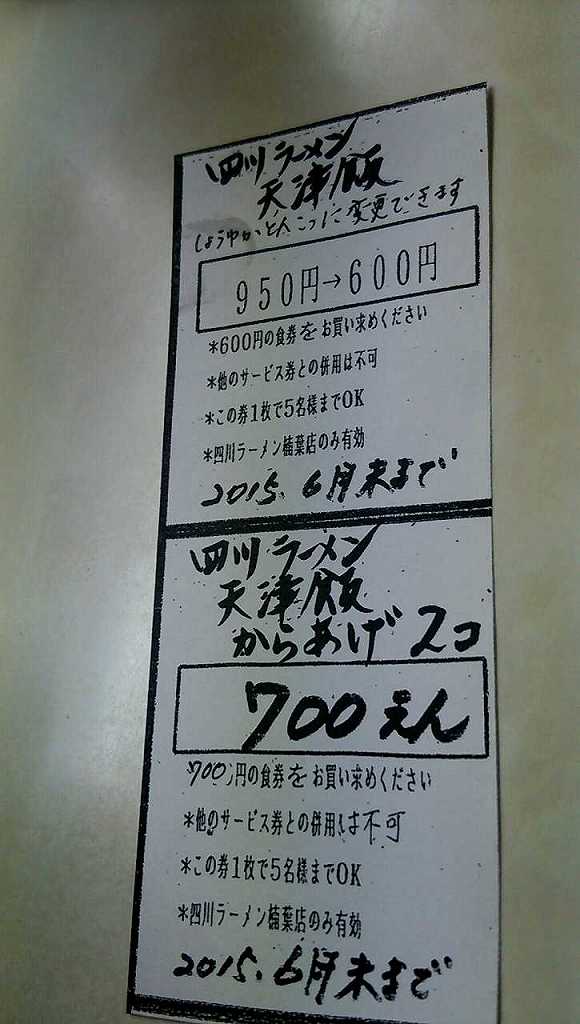 四川ラーメン
天津飯
しょうゆかとんこつに変更できます
950円→600円
*600円の食券をお買い求めください
*他のサービス券との併用は不可
*この券1枚で5名様までOK
*四川ラーメン楠葉店のみ有効
2015.6月末まで
四川ラーメン
天津飯
からあげ2コ
700えん
700円の食券をお買い求めください
*他のサービス券との併用は不可
*この券1枚で5名様までOK
*四川ラーメン楠葉店のみ有効
2015.6月末まで